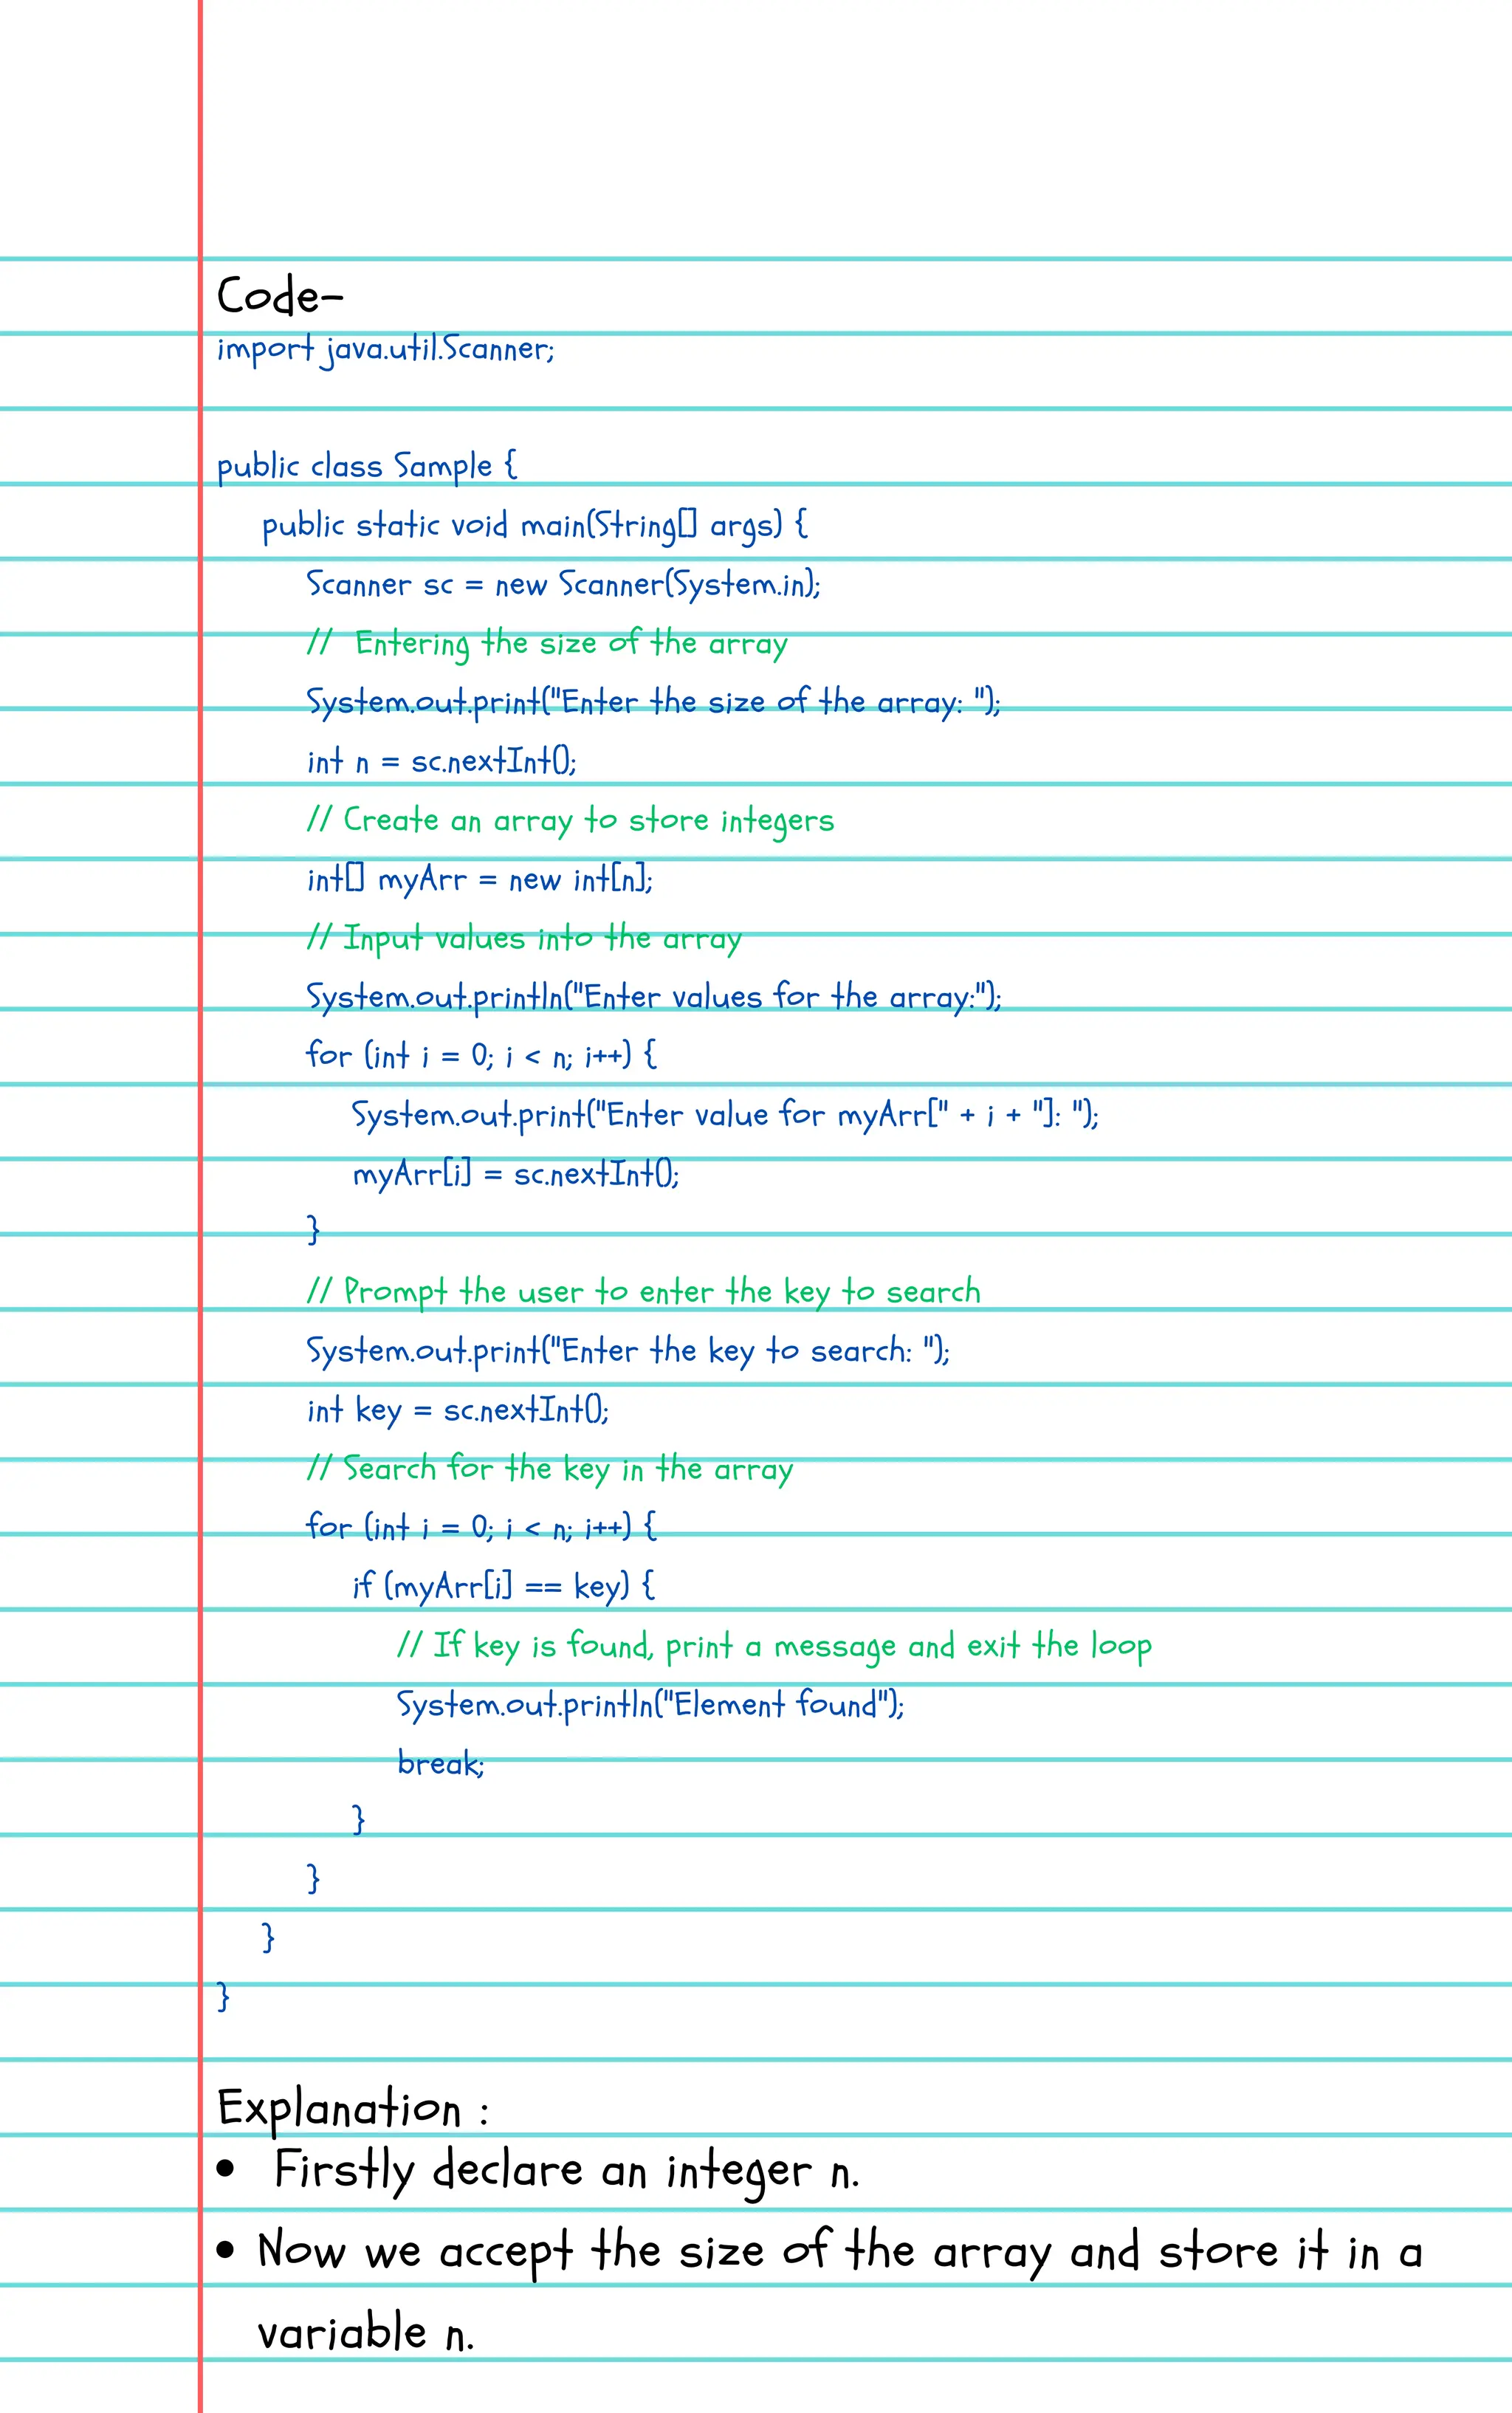 Code-
import java.util.Scanner;
public class Sample {
public static void main(String[] args) {
Scanner sc = new Scanner(System.in);
//  Entering the size of the array
System.out.print("Enter the size of the array: ");
int n = sc.nextInt();
// Create an array to store integers
int[] myArr = new int[n];
// Input values into the array
System.out.println("Enter values for the array:");
for (int i = 0; i < n; i++) {
System.out.print("Enter value for myArr[" + i + "]: ");
myArr[i] = sc.nextInt();
}
// Prompt the user to enter the key to search
System.out.print("Enter the key to search: ");
int key = sc.nextInt();
// Search for the key in the array
for (int i = 0; i < n; i++) {
if (myArr[i] == key) {
// If key is found, print a message and exit the loop
System.out.println("Element found");
break;
}
}
}
}
Explanation :
• Firstly declare an integer n.
• Now we accept the size of the array and store it in a
variable n.